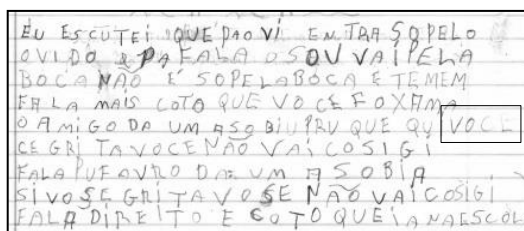 EU ESCUTEI QUE PAO VI ENTRA SO PELO
OVIDO PA FALA O SOU VAI PELA
BOCA NÃO É SO PELA BOCA E TEMEM
FALA MAIS COTO QUE VOCE FOXAMA
O AMIGO DA UM ASOBIU PRU QUE QU VOCE
CE GRITA VOCE NÃO VAI COSIGI
FALA PUFAVRO DA UM ASOBIA
SI VOSE GRITA VOSE NÃO VAI COSIGI
FALA DIREITO E COTO QUE IA NA ESCOL